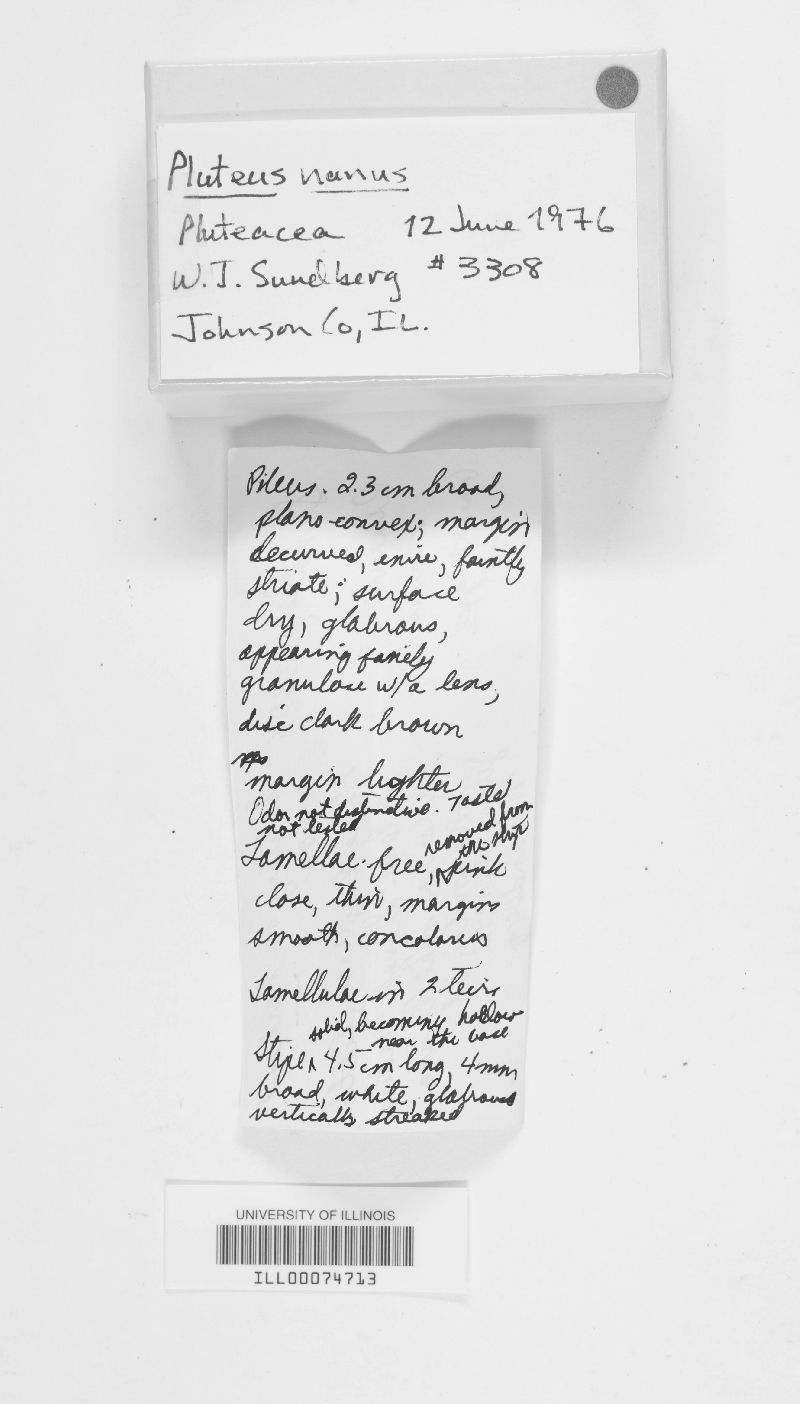 Pluteus nanus
Pluteacea 12 June 1976
W.J. Sundberg # 3308
Johnson Co, IL.
Pileus. 2.3 cm broad,
plano-convex; margin
decurved, enire, faintly
striate; surface
dry, glabrous,
appearing finely
granulose w/a lens,
disc dark brown
margin lighter
Odor not distinctive. Taste
not tested
removed from
the stipe
Lamellae. free, ^ pink
close, thin, margins
smooth, concolorus
Lamellulae in 2 teirs
solid, becoming hollow
near the base
Stipe ^ 4.5 cm long, 4mm
broad, white, glabrous
vertically streaked
UNIVERSITY OF ILLINOIS
ILL00074713